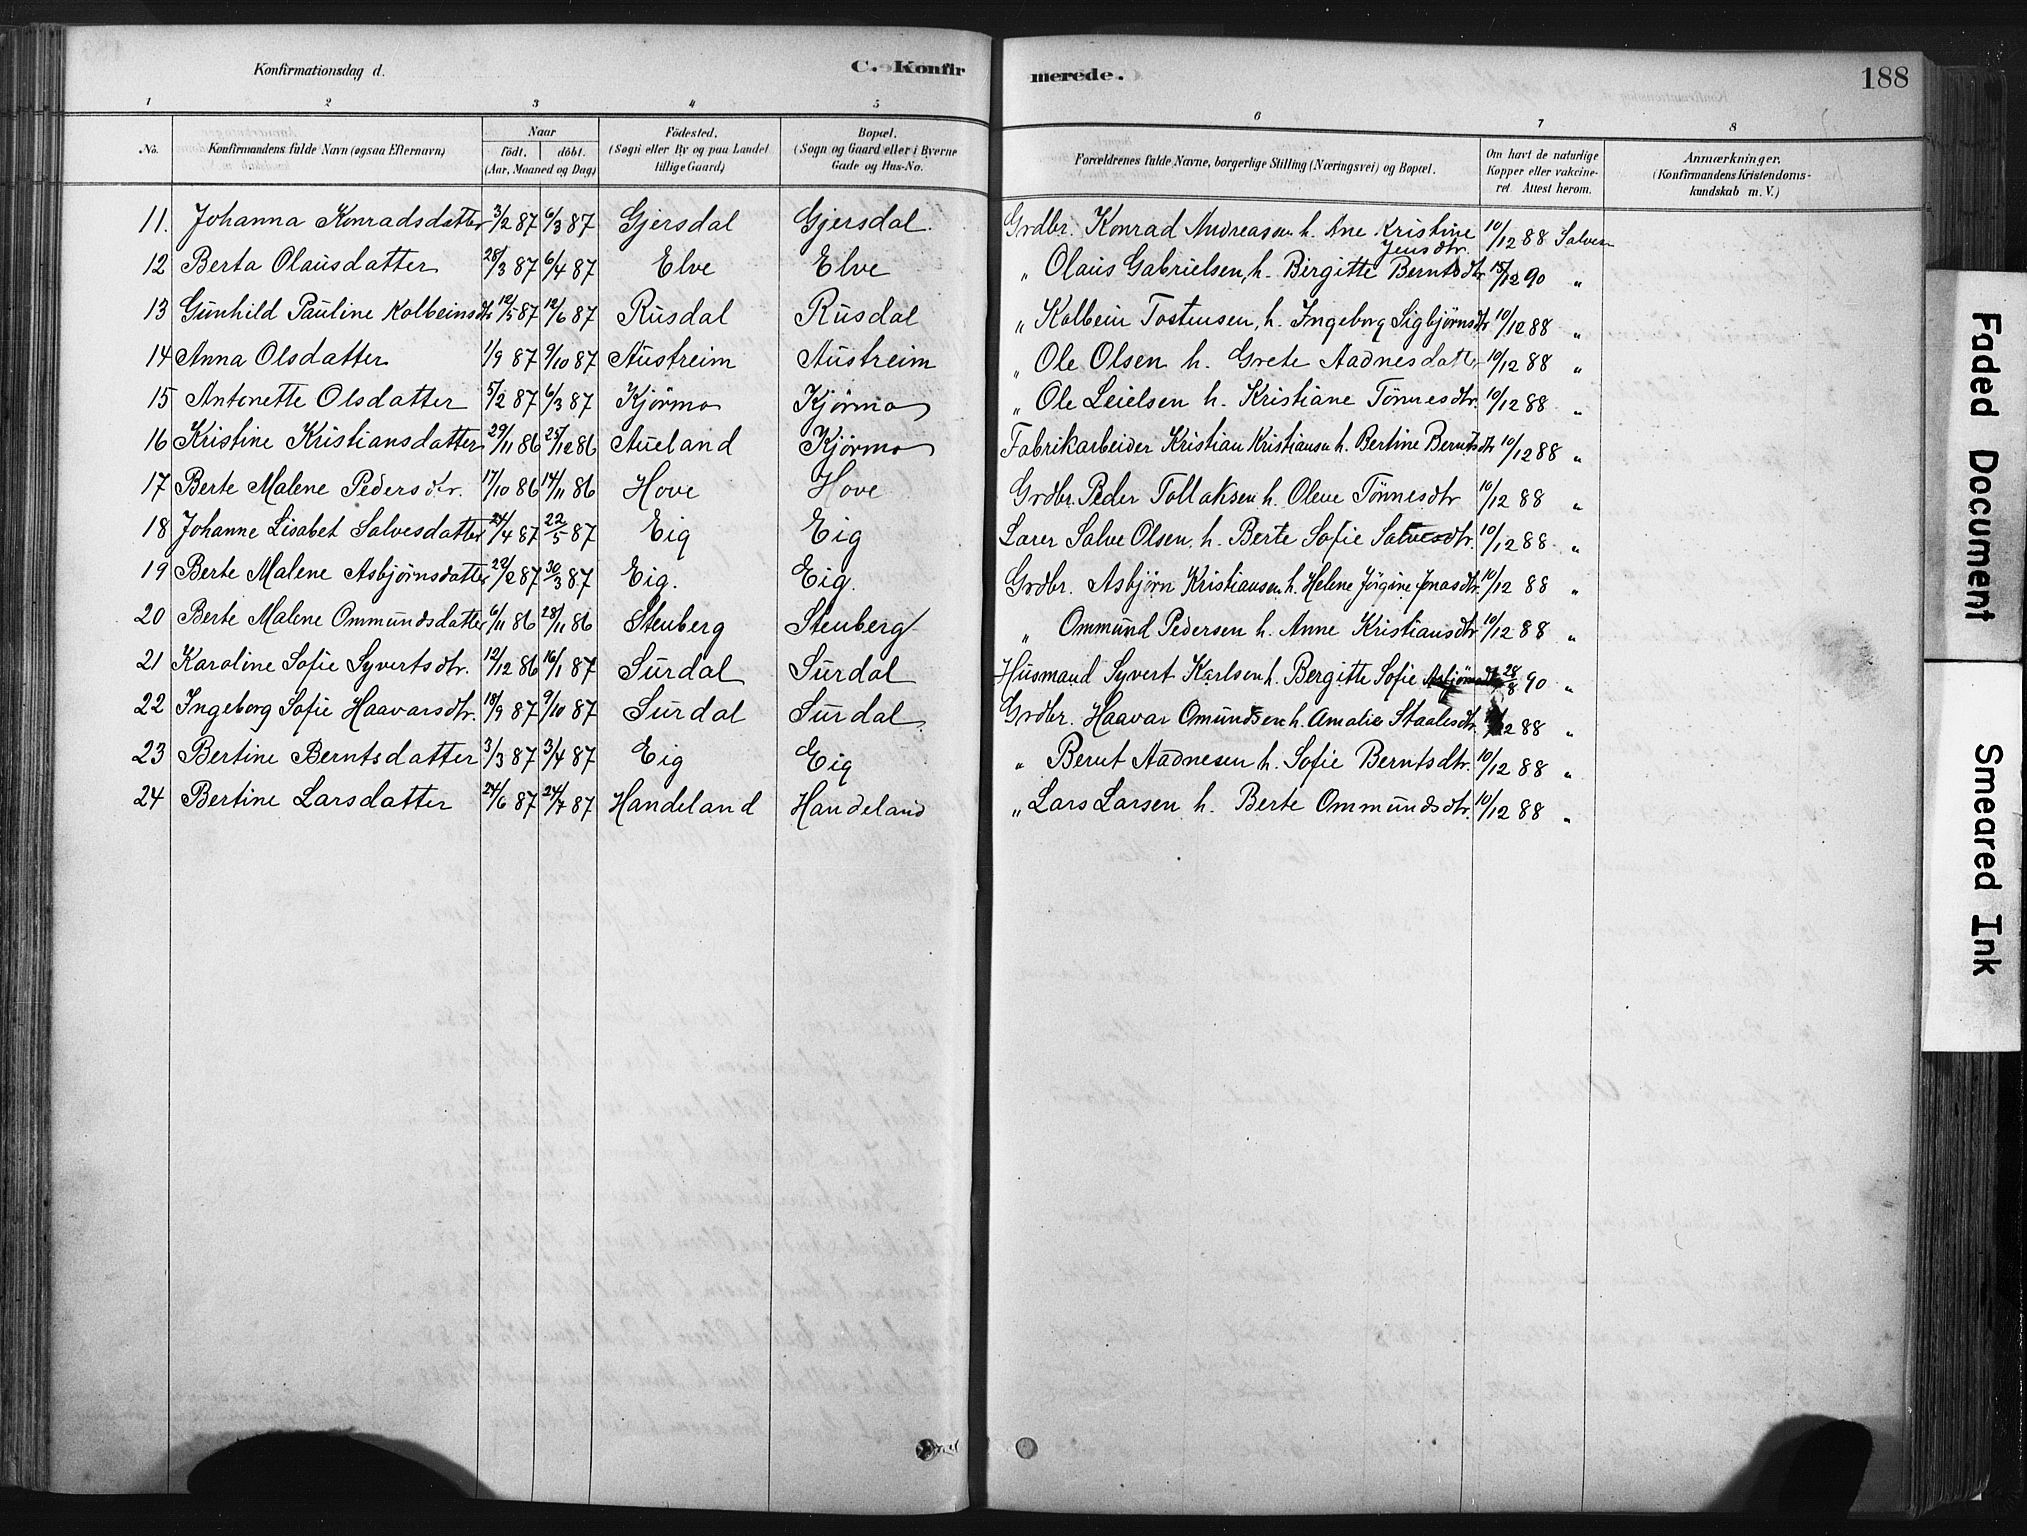 Konfirmationsdag d. C. Konfirmerede. 188
1 2 3 4 5 6 7 8
No. Konfirmandens fulde Navn (ogsaa Efternavn) Naar födt. döbt. (Aar, Maaned og Dag) Födested. (Sogn eller By og paa Landet tillige Gaard) Bopæl. (Sogn og Gaard eller i Byerne Gade og Hus-No. Forældrenes fulde Navne, borgerlige Stilling (Næringsvei) og Bopæl. Om havt de naturlige Kopper eller vakcineret. Attest herom. Anmærkninger. (Konfirmandens Kristendomskundskab m. V.)
11. Johanna Konradsdatter 3/2 87 6/3 87 Gjersdal Gjersdal. Grdbr. Konrad Andreasen h. Ane Kristine Jensdtr. 10/12 88 Salvesen
12 Berta Olausdatter 28/3 87 6/4 87 Elve Elve " Olaus Gabrielsen, h. Birgitte Berntsdtr 15/12 90 "
13 Gunhild Pauline Kolbeinsdtr 12/5 87 12/6 87 Rusdal Rusdal " Kolbein Tostensen, h. Ingeborg Sigbjørnsdtr 10/12 88 "
14 Anna Olsdatter 1/9 87 9/10 87 Austreim Austreim " Ole Olsen h. Grete Aadnesdatter 10/12 88 "
15 Antonette Olsdatter 5/2 87 6/3 87 Kjörmo Kjörmo " Ole Leielsen h. Kristiane Tönnesdtr. 10/12 88 "
16 Kristine Kristiansdatter 29/11 86 25/12 86 Aueland Kjörmo Fabrikarbeider Kristian Kristiansen h. Bertine Berntsdtr 10/12 88 "
17 Berte Malene Pedersdtr. 17/10 86 14/11 86 Hove Hove Grdbr. Peder Tollaksen h. Oleve Tönnesdtr 10/12 88 "
18 Johanne Lisabet Salvesdatter 24/4 87 22/5 87 Eig Eig Lærer Salve Olsen, h. Berte Sofie Salvesdtr. 10/12 88 "
19 Berte Malene Asbjørnsdatter 20/2 87 30/3 87 Eig. Eig. Grdbr. Asbjørn Kristiansen h. Helene Jörgine Jonasdtr. 10/12 88 "
20 Berte Malene Ommundsdatter 6/11 86 28/11 86 Stenberg Stenberg " Ommund Pedersen h. Anne Kristiansdtr 10/12 88 "
21 Karoline Sofie Syvertsdtr. 12/12 86 16/1 87 Surdal Surdal Husmand Syvert Karlsen h. Bergitte Sofie 28/8 90 "
22 Ingeborg Sofie Haavarsdtr. 18/9 87 9/10 87 Surdal Surdal. Grdbr. Haavar Omundsen h. Amalie Staalesdtr. 12 88 "
23 Bertine Berntsdatter 3/3 87 3/4 87 Eig Eig " Bernt Aadnesen h. Sofie Berntsdtr. 10/12 88 "
24 Bertine Larsdatter 24/6 87 24/7 87 Handeland Handeland " Lars Larsen h. Berte Ommundsdtr. 10/12 88 "
Faded Document
Smeared Ink